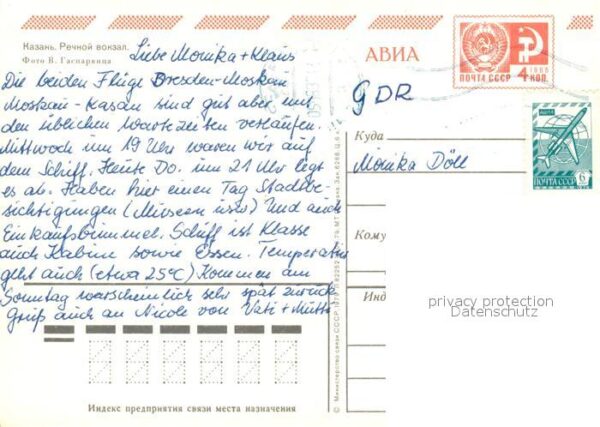 Казань. Речной вокзал.
Фото В. Гаспарянца
Liebe Monika + Klaus
Die beiden Flüge Dresden-Moskau
Moskau-Kasan sind gut aber mit
den üblichen Wartezeiten verlaufen.
Mittwoch um 19 Uhr waren wir auf
dem Schiff. Heute Do. um 21 Uhr legt
es ab. Haben hier einen Tag Stadtbe-
sichtigungen (Museen usw) Und auch
Einkaufsbummel. Schiff ist Klasse
auch Kabine sowie Essen. Temperatur
geht auch (etwa 25°C) Kommen am
Sonntag warscheinlich sehr spät zurück
Gruß auch an Nicole von Vati + Mutti
Индекс предприятия связи места назначения
© Министерство связи СССР
АВИА
ПОЧТА СССР
4 КОП.
GDR
ПОЧТА СССР
6
Куда
Monika Döll
Кому
Инд
privacy protection
Datenschutz